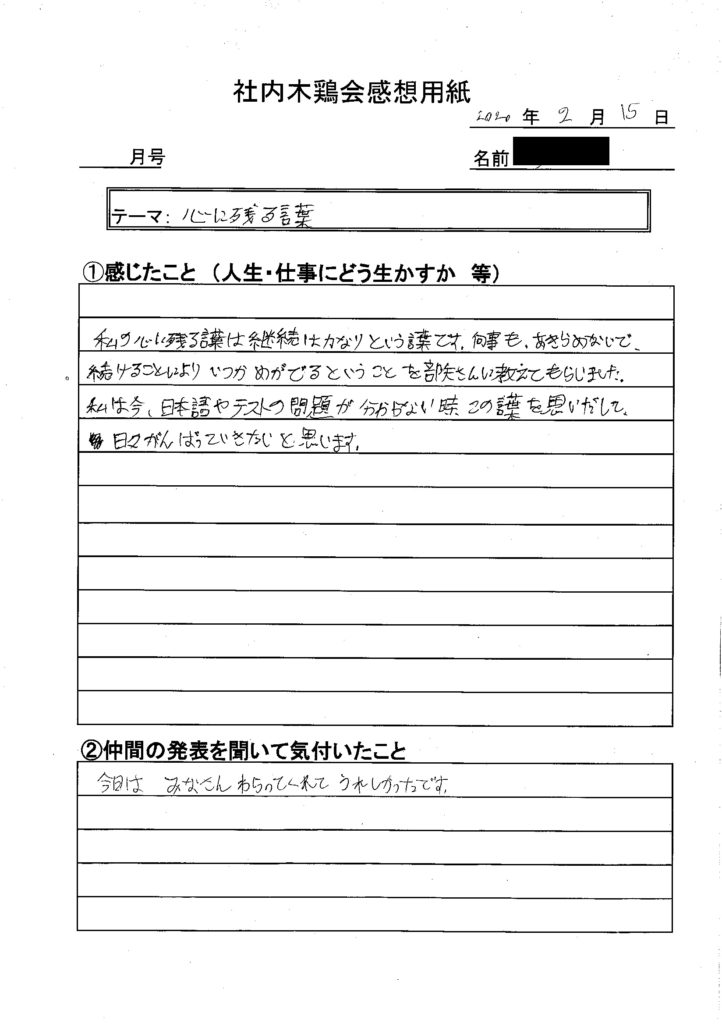 社内木鶏会感想用紙
2020 年 2 月 15 日
月号
名前
テーマ: 心に残る言葉
①感じたこと (人生・仕事にどう生かすか 等)
私の心に残る言葉は継続は力なりという葉です。何事も、あきらめないで、
続けることにより いつか めがでるということ を部長さんに教えてもらいました。
私は今、日本語やテストの問題が 分からない時 この葉を思いだして、
日々がんばっていきたい と思います。
②仲間の発表を聞いて気付いたこと
今日は みなさん わらってくれて うれしかったです。